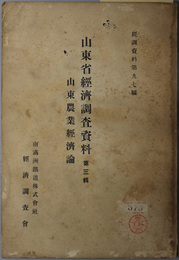 經調資料第五七編
山東省經濟調查資料 第三輯
山東農業經濟論
南滿洲鐵道株式會社
經濟調查會